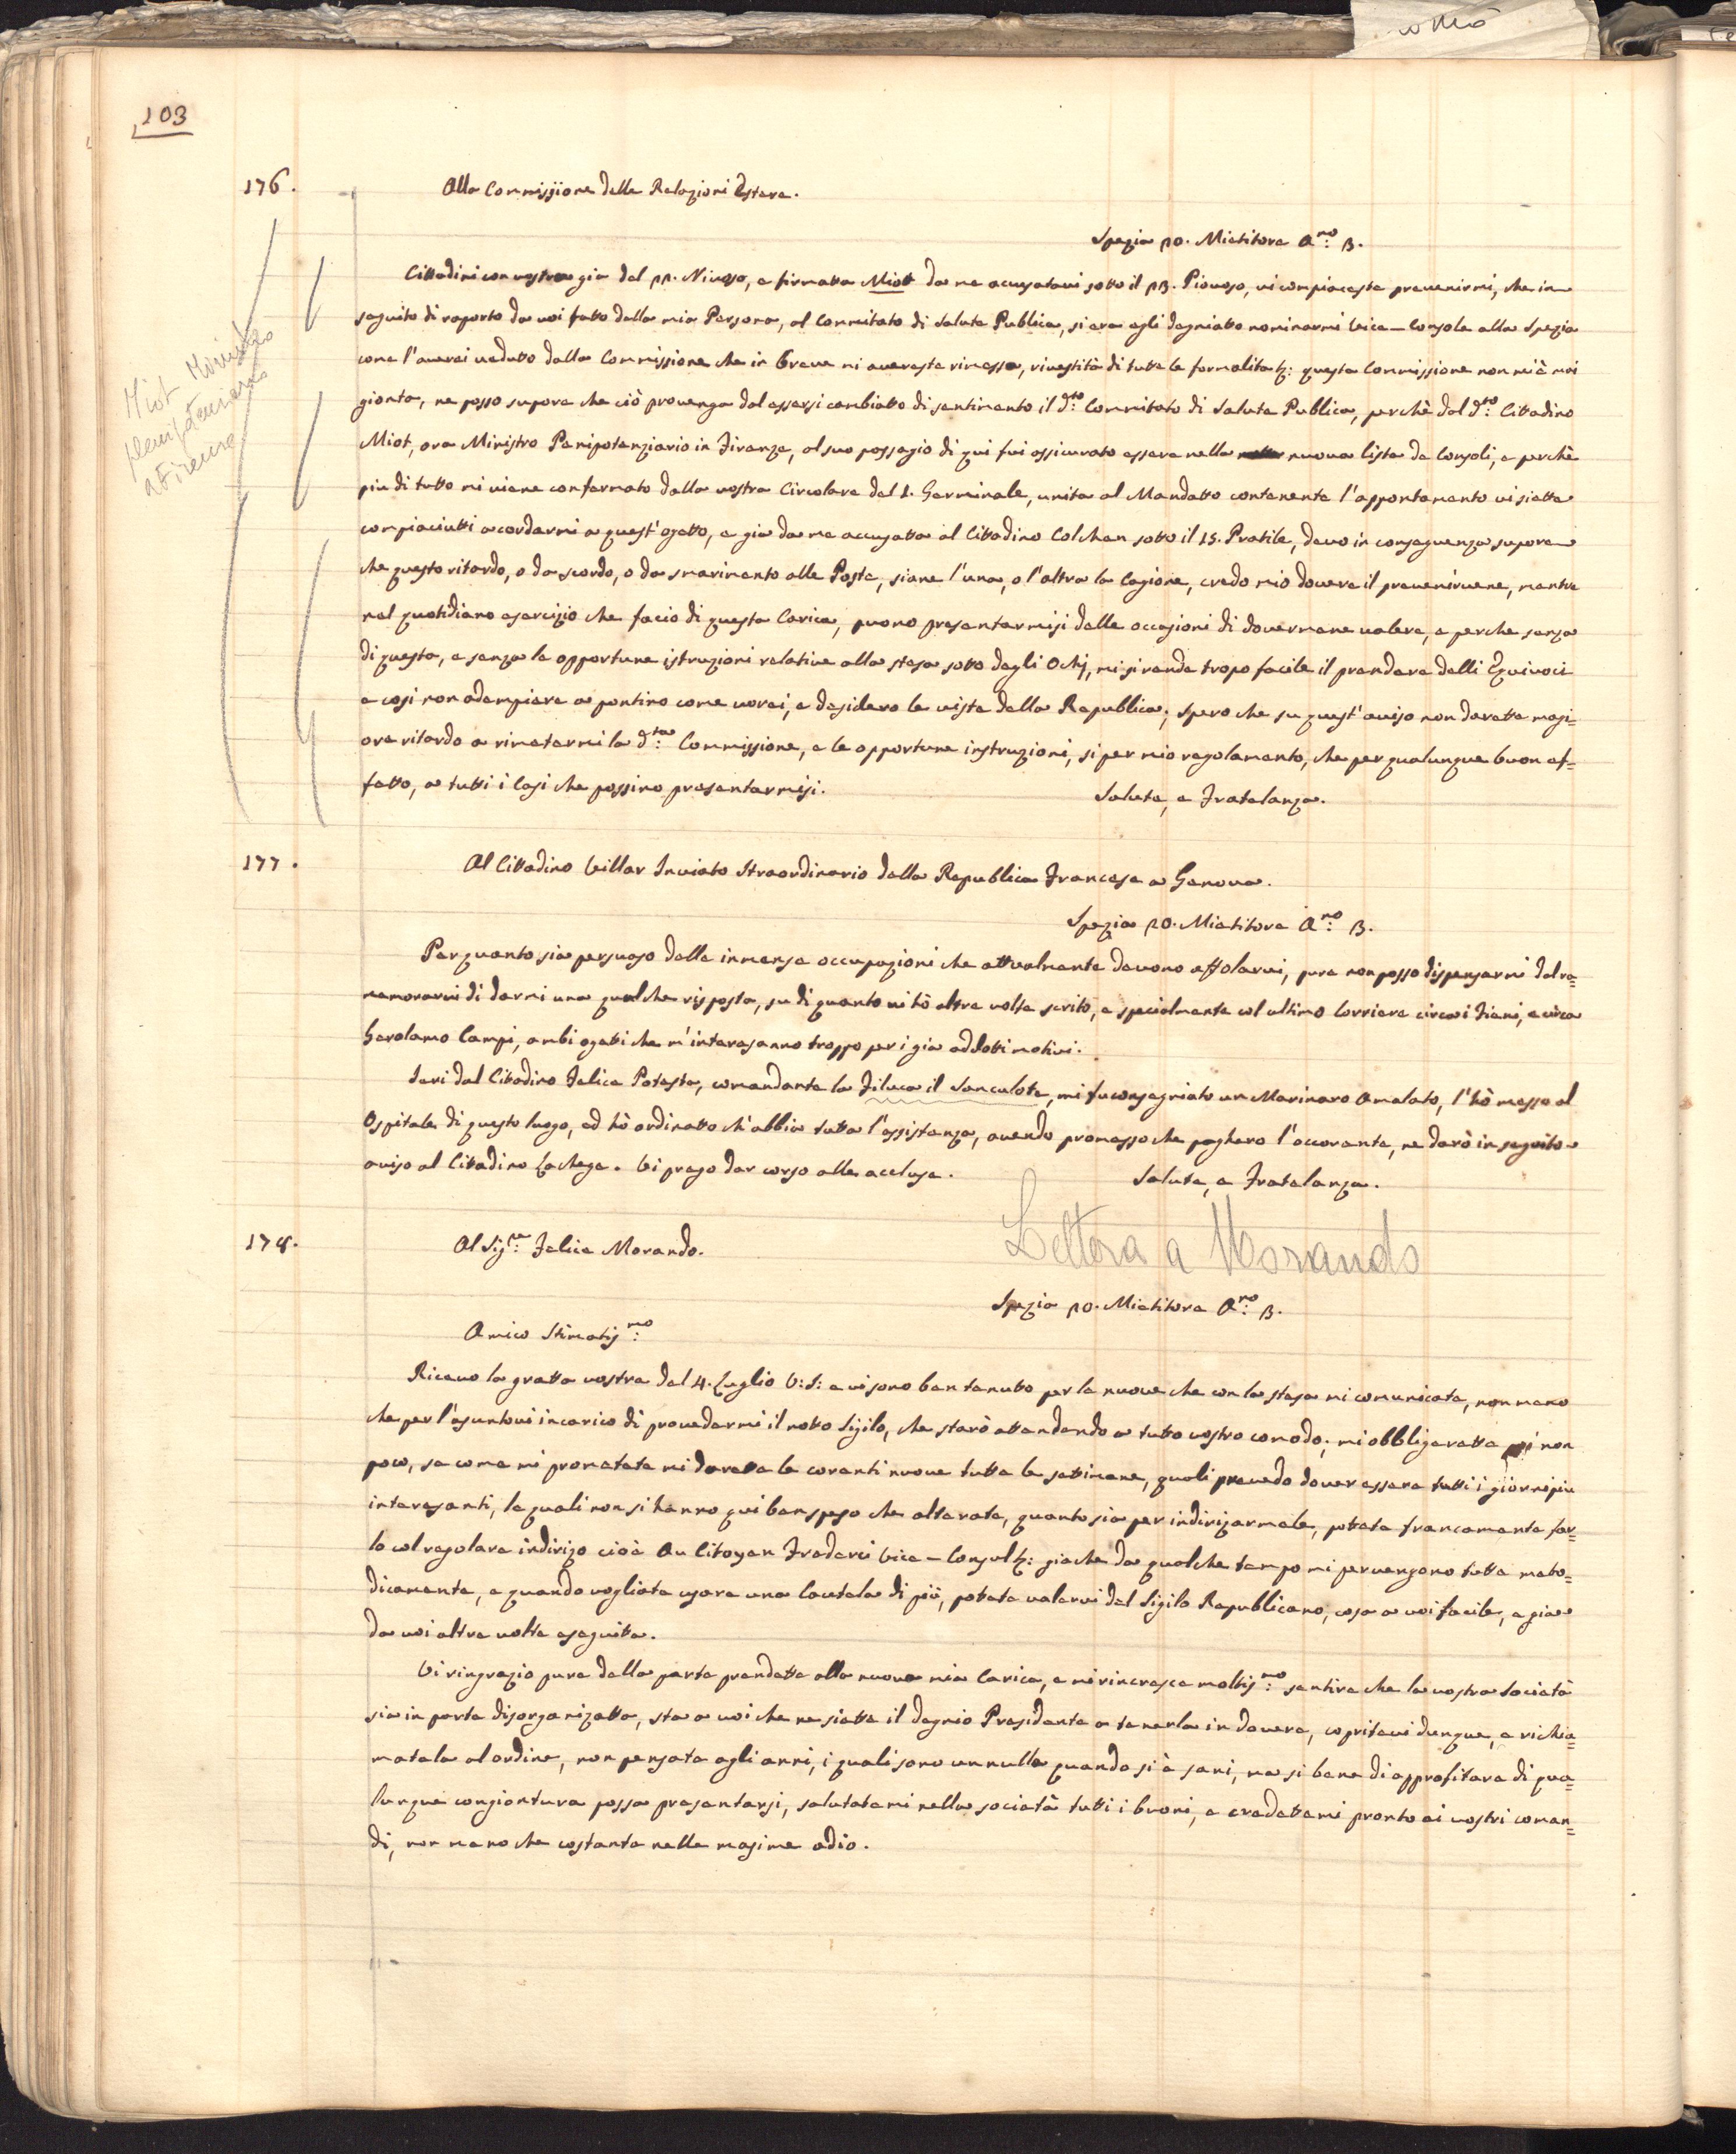 103
176.
Alla Commissione delle Relazioni Estere.
Spezia 20. Mietitore A.no 3.
Cittadini con vostra già del 22. Nivoso, e firmatta Miot da me accusatavi sotto il 23. Piovoso, vi compiaceste prevenirmi, che in
seguito di raporto da voi fatto della mia Persona, al Commitato di Salute Publica, si era egli degniatto nominarmi Vice-Console alla Spezia
come l'averei veduto dalla Commissione che in breve mi avereste rimessa, rivestita di tutte le formalità &: questa Commissione non mi è mai
gionta, ne posso supore che ciò provenga dal essersi cambiatto di sentimento il d.to Commitato di Salute Publica, perchè dal d.to Cittadino
Miot, ora Ministro Penipotenziario in Firenze, al suo passagio di qui fui assicurato essere nella nuova lista de Consoli, e perchè
piu di tutto mi viene confermato dalla vostra Circolare del 1. Germinale, unita al Mandatto contenente l'appontamento vi siette
compiaciutti acordarmi a quest'ogetto, e già da me accusatta al Cittadino Colchen sotto il 15. Pratile, devo in conseguenza supore
che questo ritardo, o da scordo, o da smarimento alle Poste, siane l'una, o l'altra la Cagione, credo mio dovere il prevenirvene, mentre
nel quotidiano esercizio che facio di questa Carica, puono presentarmisi delle occasioni di dovermene valere, e perche senza
di questa, e senza le opportune istruzioni relative alla stesa sotto degli Ochj, mi si rende tropo facile il prendere delli Equivoci
e cosi non adempiere a puntino come vorei, e desidero le viste della Republica; Spero che su quest'aviso non darette magi=
ore ritardo a rimetermi la d.ta Commissione, e le opportune instruzioni, si per mio regolamento, che per qualunque buon ef=
fetto, a tutti i Casi che possino presentarmisi.
Salute, e Fratelanza.
Miot Ministro
plenipotenziario
a Firenze
177.
Al Cittadino Villar Inviato Straordinario della Republica Francese a Genova.
Spezia 20. Mietitore A.no 3.
Per quanto sia persuaso delle immense occupazioni che attualmente devono affolarvi, pure non posso dispensarmi dal ra=
memorarvi di darmi una qualche risposta, su di quanto vi hò altre volte scrito, e specialmente col ultimo Corriere circa i Fieni, e circa
Gerolamo Campi, ambi ogetti che m'interesanno troppo per i già addotti motivi.
Ieri dal Cittadino Felice Potesta, comandante la Filuca il Sanculote, mi fu consegniato un Marinaro Amalato, l'hò messo al
Ospitale di questo luogo, ed hò ordinatto ch'abbia tutta l'assistenza, avendo promesso che pagherò l'occorente, ne darò in seguito
aviso al Cittadino Lachege. Vi prego dar corso alle acclusa.
Salute, e Fratelanza.
178.
Al Sig.re Felice Morando.
Lettera a Morando
Spezia 20. Mietitore A.no 3.
Amico Stimatis.mo
Ricevo la gratta vostra del 4. Luglio V:S: e vi sono ben tenuto per le nuove che con la stesa mi comunicate, non meno
che per l'asuntovi incarico di provedermi il notto Sigilo, che starò attendendo a tutto vostro comodo; mi obbligarette poi non
poco, se come mi prometete mi darette le corenti nuove tutte le settimane, quali prevedo dover essere tutti i giorni piu
interesanti, le quali non si hanno qui ben speso che alterate, quanto sia per indirizarmele, potete francamente far=
lo col regolare indirizo cioè Au Citoyen Frederici Vice-Consul &: giache da qualche tempo mi pervengono tutte meto=
dicamente, e quando vogliate usare una Cautela di più, potete valervi del Sigilo Republicano, cosa a voi facile, e già
da voi altre volte eseguita.
Vi ringrazio pure della parte prendette alla nuova mia Carica, e mi rincresce moltis.mo sentire che la vostra Società
sia in parte disorganizatta, sta a voi che ne siette il degnio Presidente a tenerla in dovere, copritevi dunque, e richia=
matela al ordine, non pensate agli anni, i quali sono un nulla quando si è sani, ma si bene di approfitare di qua=
lunque congiontura possa presentarsi, salutatemi nella società tutti i buoni, e credettemi pronto ai vostri coman=
di, non meno che costante nelle masime adio.